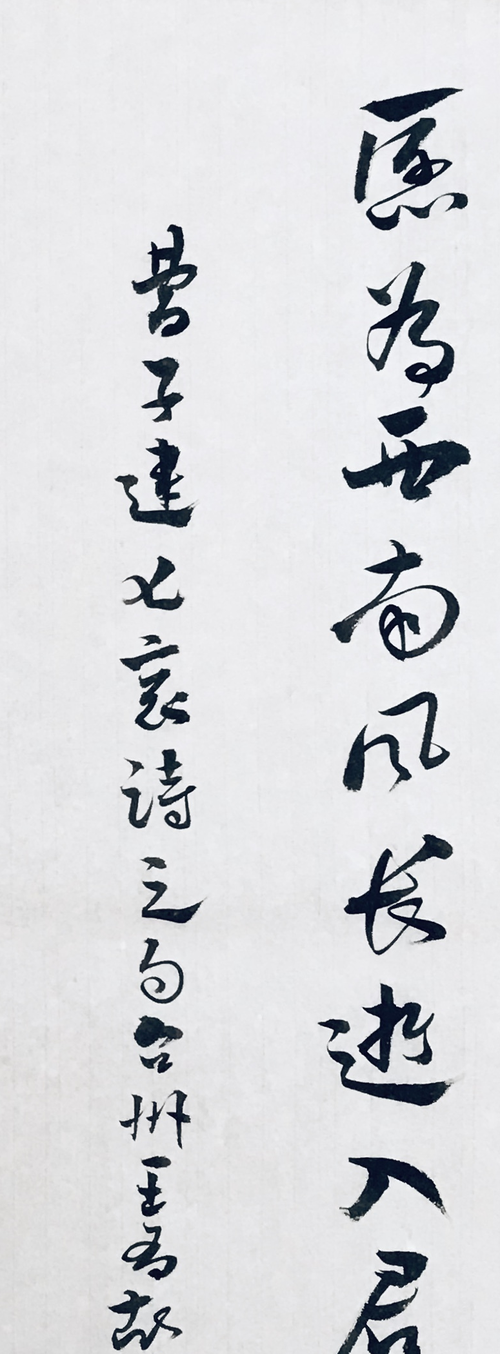 愿为西南风长逝入君
曹子建七哀诗之句台州王为